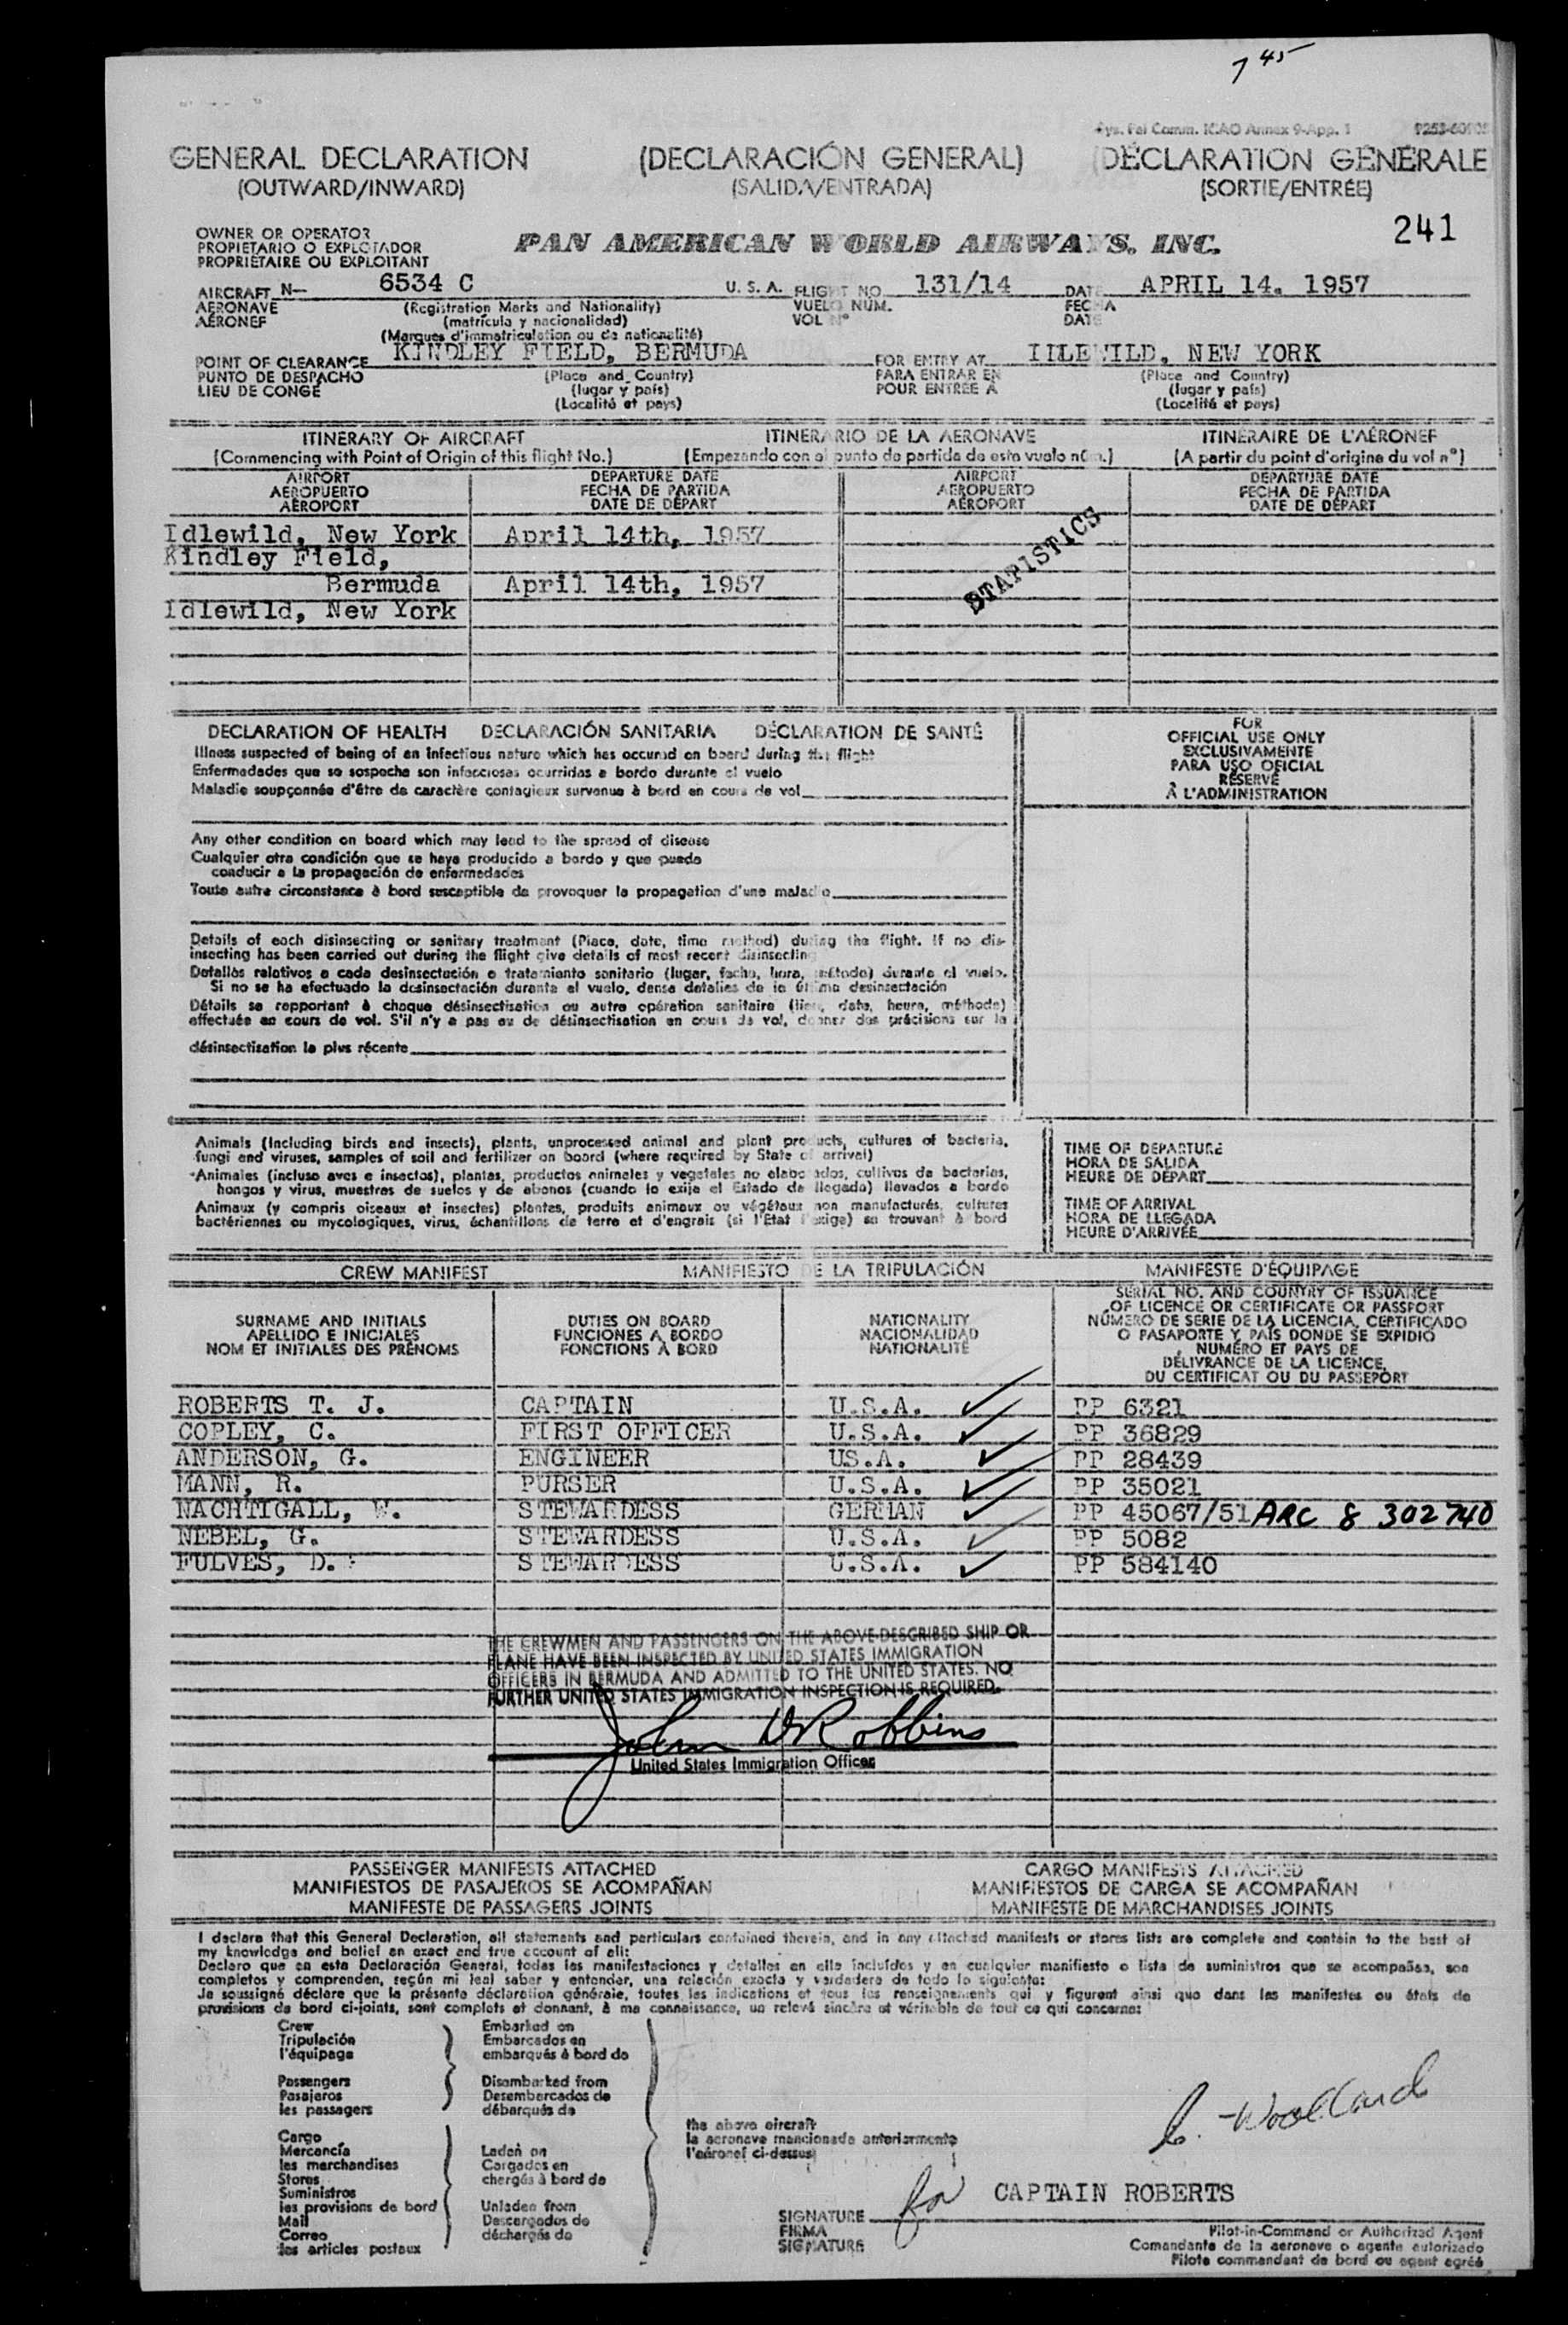 7 45
Sys. Fal Comm. ICAO Annex 9-App. 1
GENERAL DECLARATION (DECLARACIÓN GENERAL) (DÉCLARATION GÉNÉRALE
(OUTWARD/INWARD) (SALIDA/ENTRADA) (SORTIE/ENTRÉE)
241
OWNER OR OPERATOR
PROPIETARIO O EXPLOTADOR
PROPRIÉTAIRE OU EXPLOITANT
PAN AMERICAN WORLD AIRWAYS, INC.
AIRCRAFT N— 6534 C U. S. A. FLIGHT NO 131/14 DATE APRIL 14. 1957
AERONAVE (Registration Marks and Nationality) VUELO NÚM. FECHA
AÉRONEF (matrícula y nacionalidad) VOL N° DATE
(Marques d'immatriculation ou de nationalité)
POINT OF CLEARANCE KINDLEY FIELD, BERMUDA FOR ENTRY AT IDLEWILD, NEW YORK
PUNTO DE DESPACHO (Place and Country) PARA ENTRAR EN (Place and Country)
LIEU DE CONGÉ (lugar y país) POUR ENTRÉE À (lugar y país)
(Localité et pays) (Localité et pays)
ITINERARY OF AIRCRAFT ITINERARIO DE LA AERONAVE ITINÉRAIRE DE L'AÉRONEF
(Commencing with Point of Origin of this flight No.) (Empezando con el punto de partida de este vuelo núm.) (A partir du point d'origine du vol n°)
AIRPORT DEPARTURE DATE AIRPORT DEPARTURE DATE
AEROPUERTO FECHA DE PARTIDA AEROPUERTO FECHA DE PARTIDA
AÉROPORT DATE DE DÉPART AÉROPORT DATE DE DÉPART
Idlewild, New York April 14th, 1957
Kindley Field,
Bermuda April 14th, 1957
Idlewild, New York
STATISTICS
DECLARATION OF HEALTH DECLARACIÓN SANITARIA DÉCLARATION DE SANTÉ
Illness suspected of being of an infectious nature which has occured on board during the flight
Enfermedades que se sospecha son infecciosas ocurridas a bordo durante el vuelo
Maladie soupçonnée d'être de caractère contagieux survenue à bord en cours de vol
FOR
OFFICIAL USE ONLY
EXCLUSIVAMENTE
PARA USO OFICIAL
RÉSERVÉ
À L'ADMINISTRATION
Any other condition on board which may lead to the spread of disease
Cualquier otra condición que se haya producido a bordo y que pueda
conducir a la propagación de enfermedades
Toute autre circonstance à bord susceptible de provoquer la propagation d'une maladie
Details of each disinsecting or sanitary treatment (Place, date, time method) during the flight. If no dis-
insecting has been carried out during the flight give details of most recent disinsecting
Detallés relativos a cada desinsectación o tratamiento sanitario (lugar, fecha, hora, método) durante el vuelo.
Si no se ha efectuado la desinsectación durante el vuelo, dense detalles de la última desinsectación
Détails se rapportant à chaque désinsectisation ou autre opération sanitaire (lieu, date, heure, méthode)
effectuée en cours de vol. S'il n'y a pas eu de désinsectisation en cours de vol, donner des précisions sur la
désinsectisation la plus récente
Animals (including birds and insects), plants, unprocessed animal and plant products, cultures of bacteria,
fungi and viruses, samples of soil and fertilizer on board (where required by State of arrival)
Animales (incluso aves e insectos), plantas, productos animales y vegetales no elaborados, cultivos de bacterias,
hongos y virus, muestras de suelos y de abonos (cuando lo exija el Estado de llegada) llevados a bordo
Animaux (y compris oiseaux et insectes) plantes, produits animaux ou végétaux non manufacturés, cultures
bactériennes ou mycologiques, virus, échantillons de terre et d'engrais (si l'État l'exige) se trouvant à bord
TIME OF DEPARTURE
HORA DE SALIDA
HEURE DE DÉPART
TIME OF ARRIVAL
HORA DE LLEGADA
HEURE D'ARRIVÉE
CREW MANIFEST MANIFIESTO DE LA TRIPULACIÓN MANIFESTE D'ÉQUIPAGE
SURNAME AND INITIALS DUTIES ON BOARD NATIONALITY SERIAL NO. AND COUNTRY OF ISSUANCE
APELLIDO E INICIALES FUNCIONES A BORDO NACIONALIDAD OF LICENCE OR CERTIFICATE OR PASSPORT
NOM ET INITIALES DES PRÉNOMS FONCTIONS À BORD NATIONALITÉ NÚMERO DE SERIE DE LA LICENCIA, CERTIFICADO
O PASAPORTE Y PAÍS DONDE SE EXPIDIÓ
NUMÉRO ET PAYS DE
DÉLIVRANCE DE LA LICENCE,
DU CERTIFICAT OU DU PASSEPORT
ROBERTS T. J. CAPTAIN U.S.A. PP 6321
COPLEY, C. FIRST OFFICER U.S.A. PP 36829
ANDERSON, G. ENGINEER US.A. PP 28439
MANN, R. PURSER U.S.A. PP 35021
NACHTIGALL, W. STEWARDESS GERMAN PP 45067/51 ARC 8 302740
NEBEL, G. STEWARDESS U.S.A. PP 5082
FULVES, D. STEWARDESS U.S.A. PP 584140
THE CREWMEN AND PASSENGERS ON THE ABOVE-DESCRIBED SHIP OR
PLANE HAVE BEEN INSPECTED BY UNITED STATES IMMIGRATION
OFFICERS IN BERMUDA AND ADMITTED TO THE UNITED STATES. NO
FURTHER UNITED STATES IMMIGRATION INSPECTION IS REQUIRED.
John W Robbins
United States Immigration Officer
PASSENGER MANIFESTS ATTACHED CARGO MANIFESTS ATTACHED
MANIFIESTOS DE PASAJEROS SE ACOMPAÑAN MANIFIESTOS DE CARGA SE ACOMPAÑAN
MANIFESTE DE PASSAGERS JOINTS MANIFESTE DE MARCHANDISES JOINTS
I declare that this General Declaration, all statements and particulars contained therein, and in any attached manifests or stores lists are complete and contain to the best of
my knowledge and belief an exact and true account of all:
Declaro que en esta Declaración General, todas las manifestaciones y detalles en ella incluídos y en cualquier manifiesto o lista de suministros que se acompañas, son
completos y comprenden, según mi leal saber y entender, una relación exacta y verdadera de todo lo siguiente:
Je soussigné déclare que la présente déclaration générale, toutes les indications et tous les renseignements qui y figurent ainsi que dans les manifestes ou états de
provisions de bord ci-joints, sont complets et donnent, à ma connaissance, un relevé sincère et véritable de tout ce qui concerne:
Crew Embarked on
Tripulación Embarcados en
l'équipage embarqués à bord de
Passengers Disembarked from
Pasajeros Desembarcados de
les passagers débarqués de
Cargo the above aircraft
Mercancía Laden on la aeronave mencionada anteriormente
les marchandises Cargados en l'aéronef ci-dessus
Stores chargés à bord de
Suministros
les provisions de bord Unladen from
Mail Descargados de
Correo déchargés de
les articles postaux
C. Woollard
SIGNATURE for CAPTAIN ROBERTS
FIRMA
SIGNATURE
Pilot-in-Command or Authorized Agent
Comandante de la aeronave o agente autorizado
Pilote commandant de bord ou agent agréé